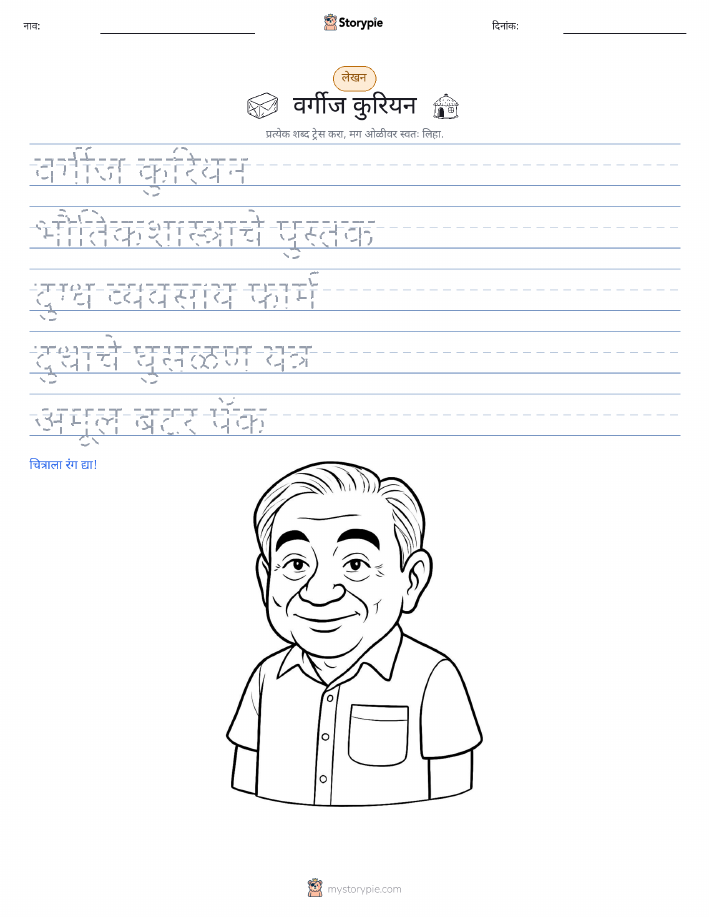 नाव:
Storypie
दिनांक:
लेखन
वर्गीज कुरियन
प्रत्येक शब्द ट्रेस करा, मग ओळीवर स्वतः लिहा.
वर्गीज कुरियन
भौतिकशास्त्राचे पुस्तक
दुग्ध व्यवसाय फार्म
दुधाचे घुसळण यंत्र
अमूल बटर पॅक
चित्राला रंग द्या!
mystorypie.com